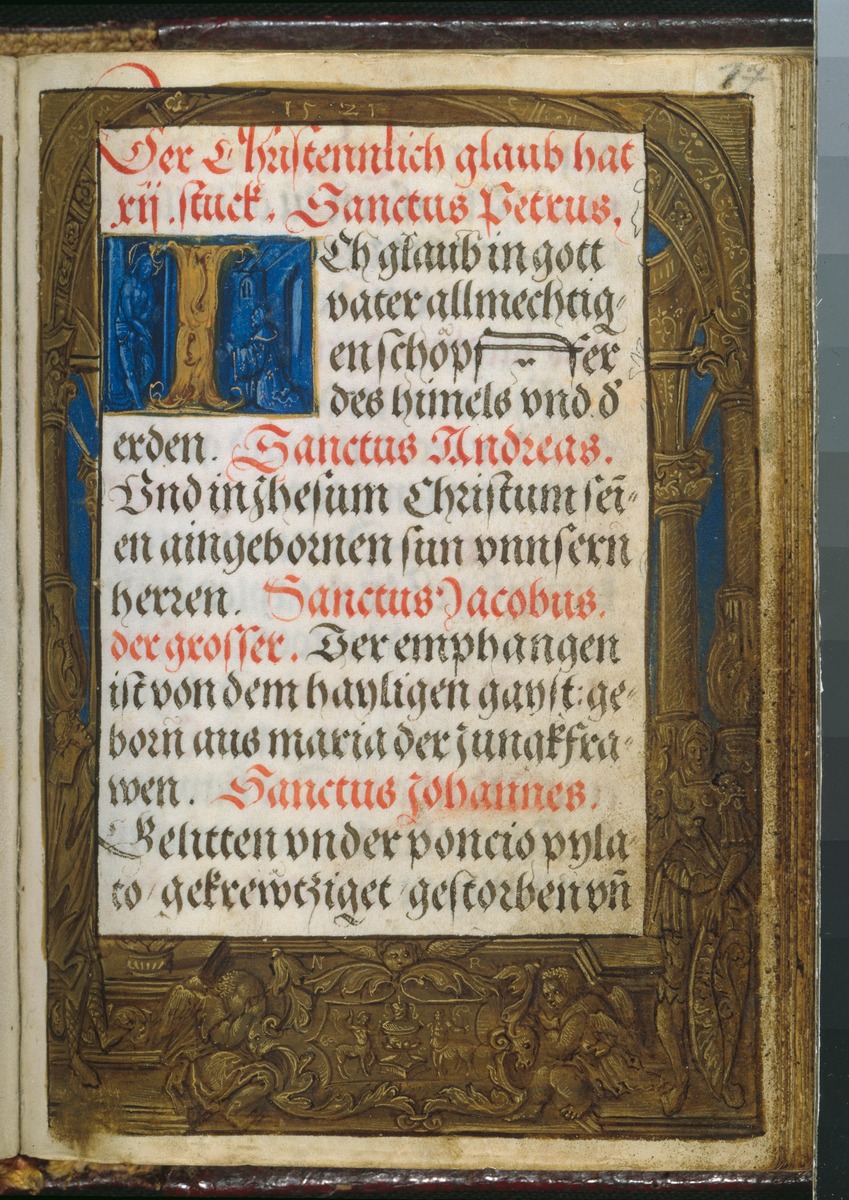 17
1521
Der Christennlich glaub hat
xij .stuck. Sanctus Petrus.
ICh glaub in gott
vater allmechtig-
en schöpffer
des himels vnd d'
erden. Sanctus Andreas.
Vnd in Jhesum Christum sei-
en aingebornen sun vnnsern
herren. Sanctus Jacobus.
der grosser. Der emphangen
ist von dem hayligen gayst: ge-
born aus maria der Jungkfra-
wen. Sanctus Johannes.
Gelitten vnder poncio pyla-
to / gekrewtziget / gestorben vñ
N R